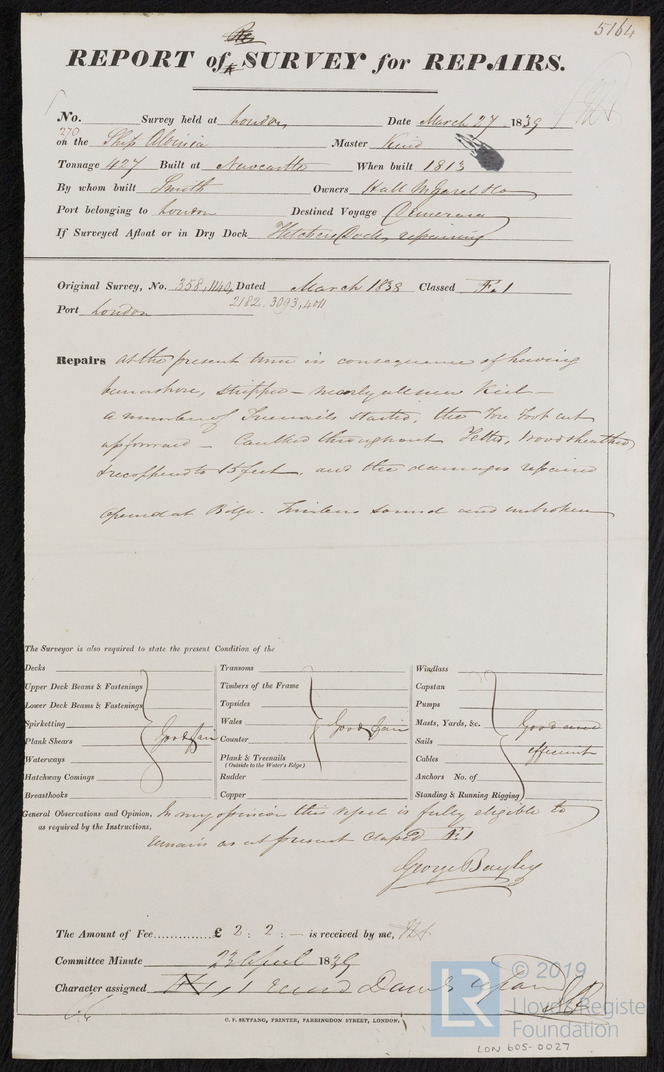 5164
REPORT of SURVEY for REPAIRS.
No. 270 Survey held at London Date March 27 1839
on the Ship Albinia Master
Tonnage 427 Built at Newcastle When built 1813
By whom built Smith Owners Hall McGarel & Co
Port belonging to London Destined Voyage Demerara
If Surveyed Afloat or in Dry Dock Fletchers Dock, repairing
Original Survey, No. 358, 1140, Dated March 1838 Classed Æ.1
2182, 3093, 4011
Port London
Repairs At the present time in consequence of having
been ashore, stripped – nearly all new Keel –
a number of Treenails started, the Fore Foot cut
up forward – Caulked throughout Felted, Wood sheathed
& recoppered to 15 feet, and the damages repaired
opened at Bilge. Timbers sound and unbroken
The Surveyor is also required to state the present Condition of the
Decks
Upper Deck Beams & Fastenings
Lower Deck Beams & Fastenings
Spirketting
Plank Shears
Waterways
Hatchway Comings
Breasthooks
Good & fair
Transoms
Timbers of the Frame
Topsides
Wales
Counter
Plank & Treenails
(Outside to the Water's Edge)
Rudder
Copper
Good & fair
Windlass
Capstan
Pumps
Masts, Yards, &c.
Sails
Cables
Anchors No. of
Standing & Running Rigging
Good and
efficient
General Observations and Opinion, In my opinion this vessel is fully eligible to
as required by the Instructions, remain as at present classed Æ.1
George Bayley
The Amount of Fee............... £ 2 : 2 : – is received by me,
Committee Minute 23 April 1839
Character assigned
C. F. SEYFANG, PRINTER, FARRINGDON STREET, LONDON.
LR
© 2019
Lloyd's Register
Foundation
LON 605-0027